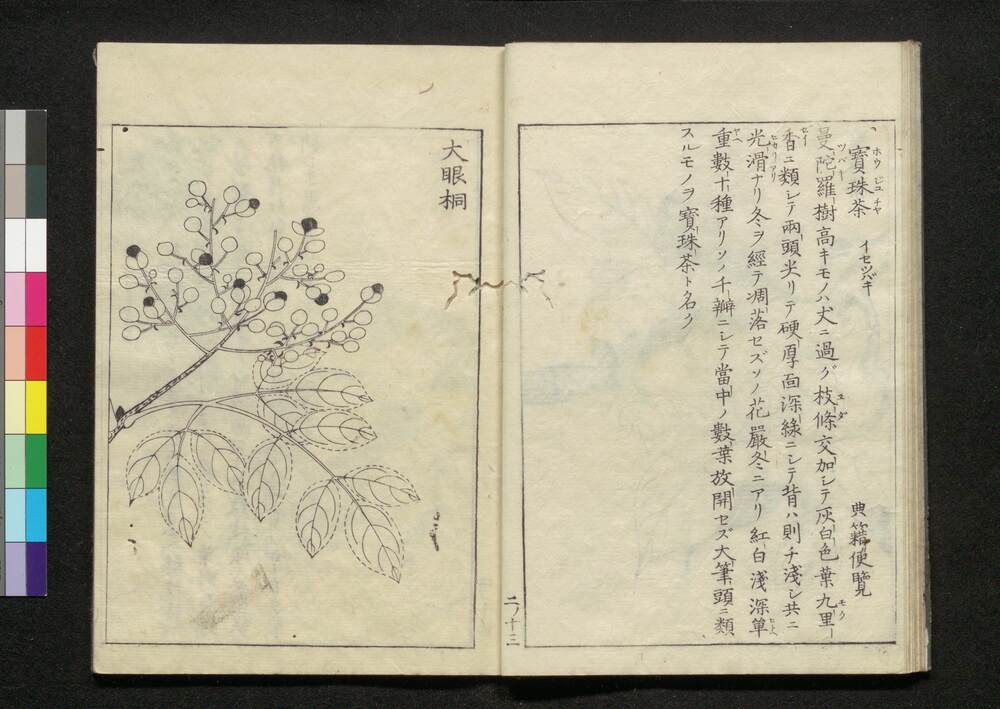 寶珠茶 イセツバキ 典籍便覽
曼陀羅樹高キモノハ犬ニ過グ枝條交加シテ灰白色葉九里
香ニ類シテ兩頭尖リテ硬厚面深綠ニシテ背ハ則チ淺シ共ニ
光滑ナリ冬ヲ經テ凋落セズソノ花嚴冬ニアリ紅白淺深單
重數十種アリソノ千瓣ニシテ當中ノ數葉放開セズ大筆頭ニ類
スルモノヲ寶珠茶ト名ク
二ノ十三
大眼桐